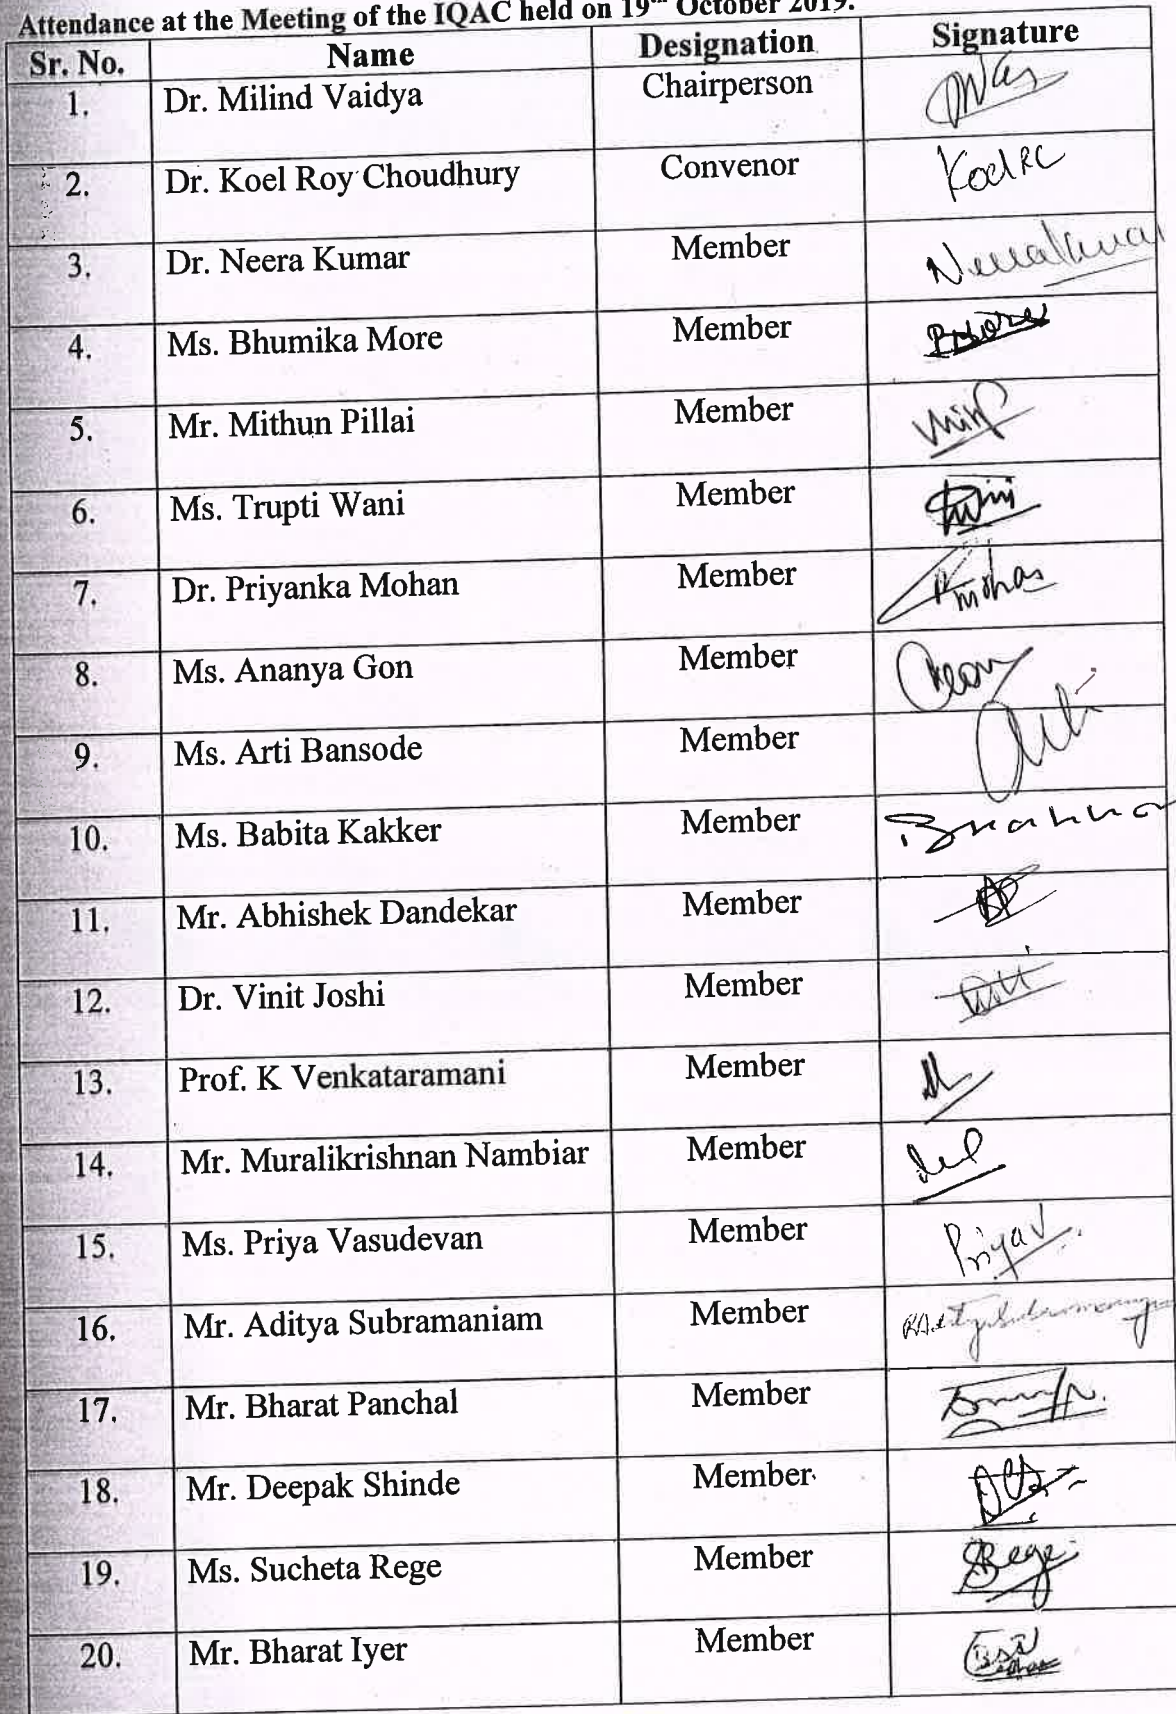 Attendance at the Meeting of the IQAC held on 19th October 2019.
Sr. No. Name Designation Signature
1. Dr. Milind Vaidya Chairperson
2. Dr. Koel Roy Choudhury Convenor KoelRC
3. Dr. Neera Kumar Member Neerakumar
4. Ms. Bhumika More Member
5. Mr. Mithun Pillai Member
6. Ms. Trupti Wani Member
7. Dr. Priyanka Mohan Member
8. Ms. Ananya Gon Member
9. Ms. Arti Bansode Member
10. Ms. Babita Kakker Member
11. Mr. Abhishek Dandekar Member
12. Dr. Vinit Joshi Member
13. Prof. K Venkataramani Member
14. Mr. Muralikrishnan Nambiar Member
15. Ms. Priya Vasudevan Member PriyaV.
16. Mr. Aditya Subramaniam Member
17. Mr. Bharat Panchal Member
18. Mr. Deepak Shinde Member
19. Ms. Sucheta Rege Member SRege
20. Mr. Bharat Iyer Member